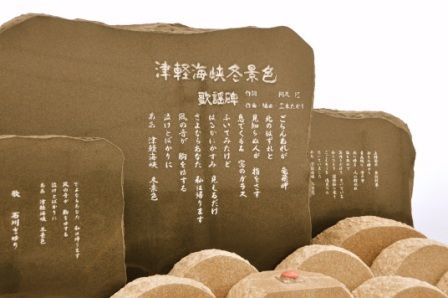 津軽海峡冬景色
歌謡碑
作詞 阿久 悠
作曲・編曲 三木たかし
ごらんあれが 竜飛岬
北のはずれと
見知らぬ人が 指をさす
息でくもる 窓のガラス
ふいてみたけど
はるかにかすみ 見えるだけ
さよならあなた 私は帰ります
風の音が 胸をゆする
泣けとばかりに
ああ 津軽海峡 冬景色
さよならあなた 私は帰ります
風の音が 胸をゆする
泣けとばかりに
ああ 津軽海峡 冬景色
歌 石川さゆり